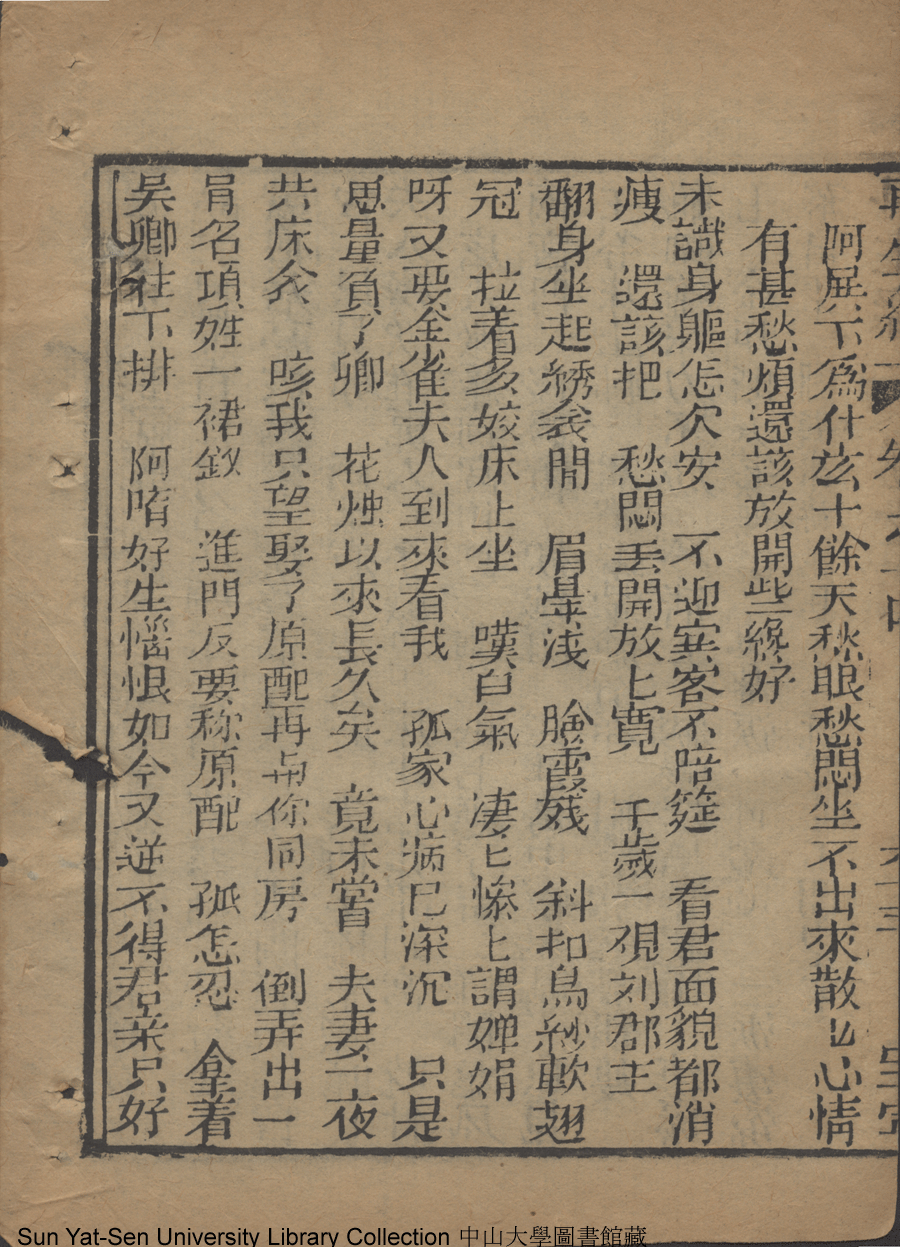 阿殿下為什玄十餘天愁眼愁悶坐不出來散匕心情
有甚愁煩還該放開些纔好
未識身軀怎欠安 不迎宾客不陪筵 看君面貌都消
瘦 還該把 愁悶丢開放匕寬 千歲一覌刘郡主
翻身坐起綉衾開 眉暈淺 臉霞殘 斜扣烏紗軟翅
冠 拉着多姣床上坐 嘆口氣 凄匕慘匕謂嬋娟
呀又要金雀夫人到來看我 孤家心病已深沉 只是
思量負了卿 花烛以來長久矣 竟未甞 夫妻一夜
共床衾 咳我只望娶了原配再与你同房 倒弄出一
冐名項姓一裙釵 進門反要称原配 孤怎忍 拿着
吳卿往下排 阿唷好生惱恨如今又逆不得君亲只好
Sun Yat-Sen University Library Collection 中山大學圖書館藏